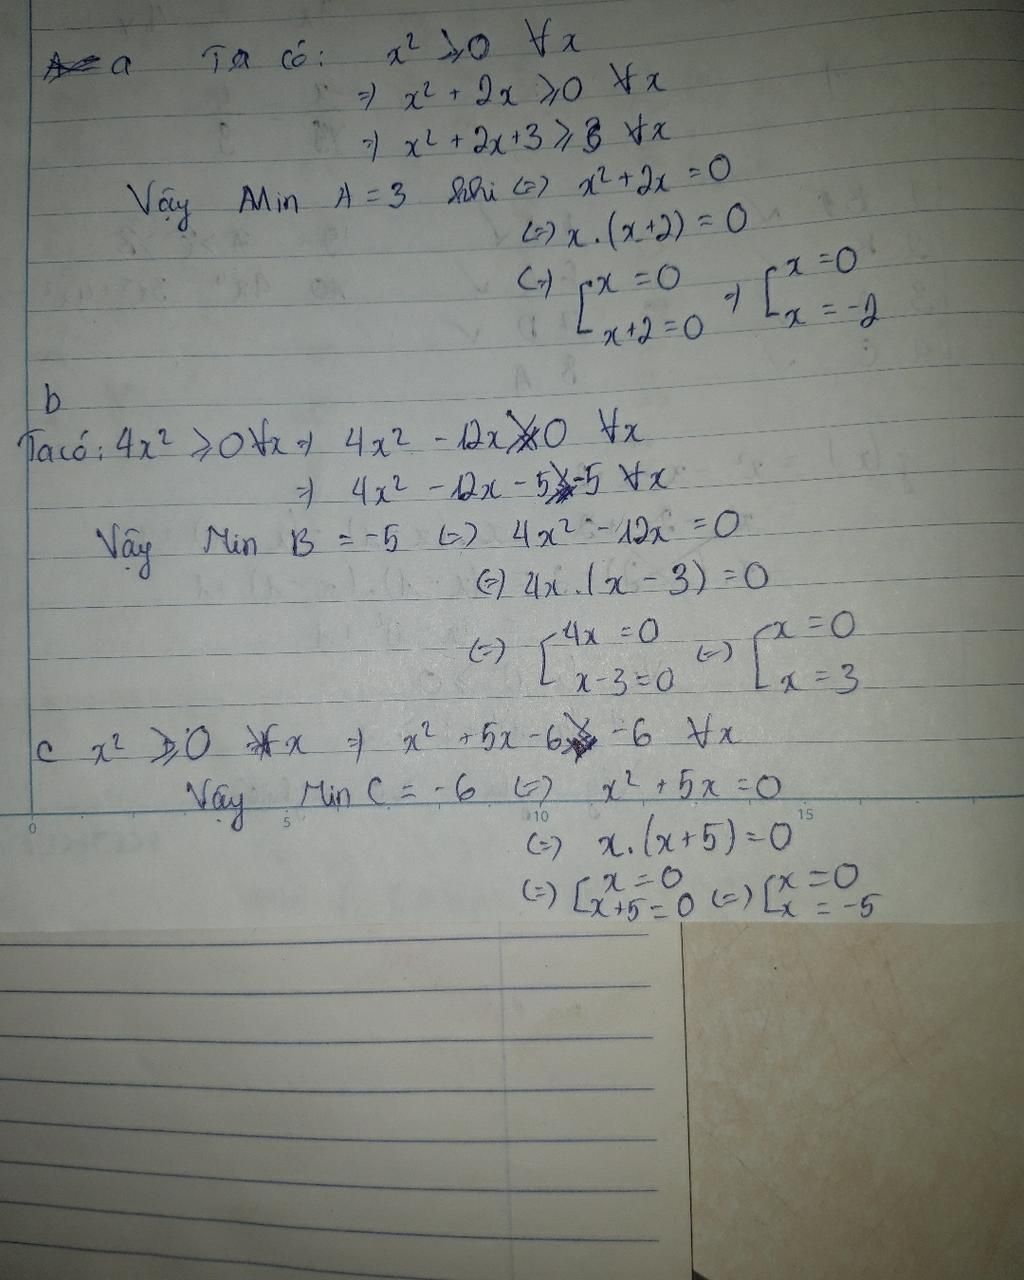 a Ta có: x² ⩾0 ∀x
=) x² + 2x ⩾0 ∀x
=) x² + 2x+3 ⩾ 3 ∀x
Vậy Min A = 3 khi (=) x² + 2x = 0
(=) x.(x+2) = 0
(=) [x = 0 =) [x = 0
x+2 = 0 x = -2
b
Ta có: 4x² ⩾0 ∀x =) 4x² - 12x ⩾0 ∀x
=) 4x² - 12x - 5 ⩾ -5 ∀x
Vậy Min B = -5 (=) 4x² - 12x = 0
(=) 4x.(x - 3) = 0
(=) [4x = 0 (=) [x = 0
x-3 = 0 x = 3
c x² ⩾0 ∀x =) x² +5x -6 ⩾ -6 ∀x
Vậy Min C = -6 (=) x² + 5x = 0
0 5 10 15
(=) x.(x+5) = 0
(=) [x = 0 (=) [x = 0
x+5 = 0 x = -5